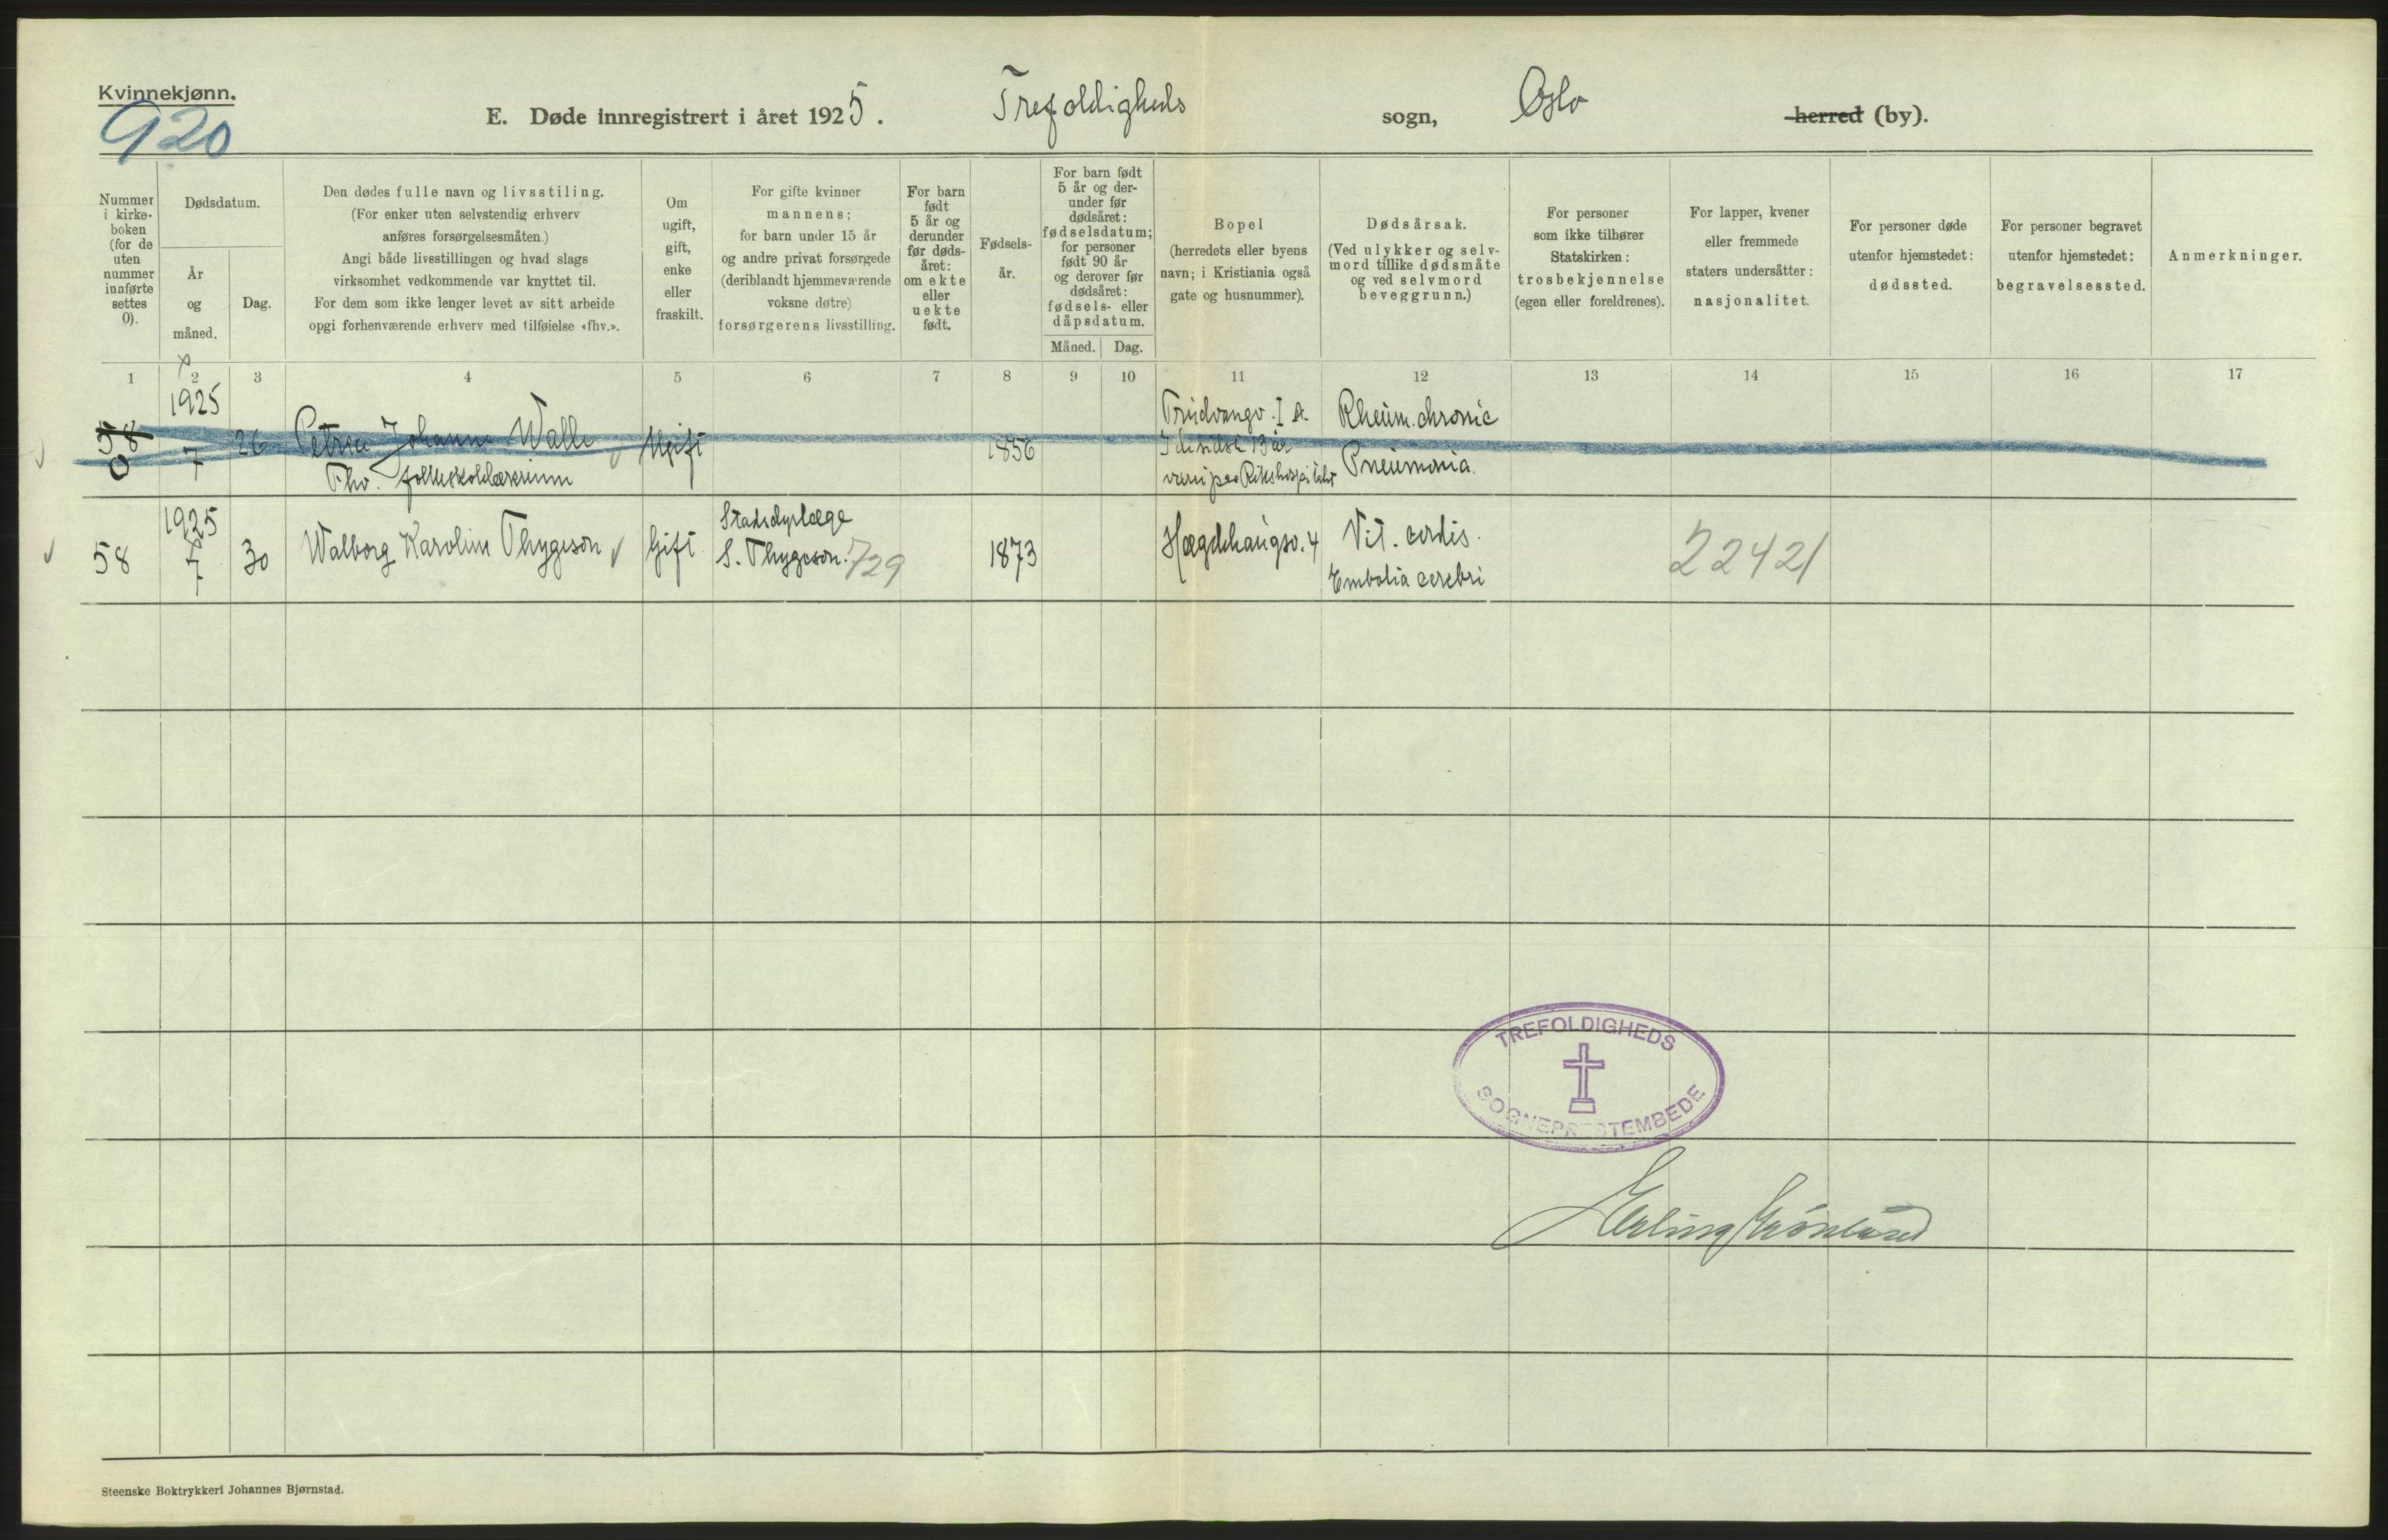 Kvinnekjønn.
920
E. Døde innregistrert i året 1925.
Trefoldigheds
sogn,
Oslo
herred (by).
Nummer
i kirke-
boken
(for de
uten
nummer
innførte
settes
0).
Dødsdatum.
År
og
måned.
Dag.
Den dødes fulle navn og livsstiling.
(For enker uten selvstendig erhverv
anføres forsørgelsesmåten.)
Angi både livsstillingen og hvad slags
virksomhet vedkommende var knyttet til.
For dem som ikke lenger levet av sitt arbeide
opgi forhenværende erhverv med tilføielse «fhv.».
Om
ugift,
gift,
enke
eller
fraskilt.
For gifte kvinner
mannens;
for barn under 15 år
og andre privat forsørgede
(deriblandt hjemmeværende
voksne døtre)
forsørgerens livsstilling.
For barn
født
5 år og
derunder
før døds-
året:
om ekte
eller
uekte
født.
Fødsels-
år.
For barn født
5 år og der-
under før
dødsåret:
fødselsdatum;
for personer
født 90 år
og derover før
dødsåret:
fødsels- eller
dåpsdatum.
Måned.
Dag.
Bopel
(herredets eller byens
navn; i Kristiania også
gate og husnummer).
Dødsårsak.
(Ved ulykker og selv-
mord tillike dødsmåte
og ved selvmord
beveggrunn.)
For personer
som ikke tilhører
Statskirken:
trosbekjennelse
(egen eller foreldrenes).
For lapper, kvener
eller fremmede
staters undersåtter:
nasjonalitet.
For personer døde
utenfor hjemstedet:
dødssted.
For personer begravet
utenfor hjemstedet:
begravelsessted.
Anmerkninger.
1 2 3 4 5 6 7 8 9 10 11 12 13 14 15 16 17
58
0
1925
7
26
Petra Johanne Walle
Fhv. folkeskolelærerinne
Ugift
1856
Trudvangv. I A.
13 år
Rikshospitalet
Rheum. chronic
Pneumonia.
58
1925
7
30
Walborg Karoline Thygeson
Gift
Stadsdyrlæge
S. Thygeson. 729
1873
Hægdehaugsv. 4
Vit. cordis.
Embolia cerebri
22421
TREFOLDIGHEDS
SOGNEPRESTEMBEDE
Erling Grönlund
Steenske Boktrykkeri Johannes Bjørnstad.